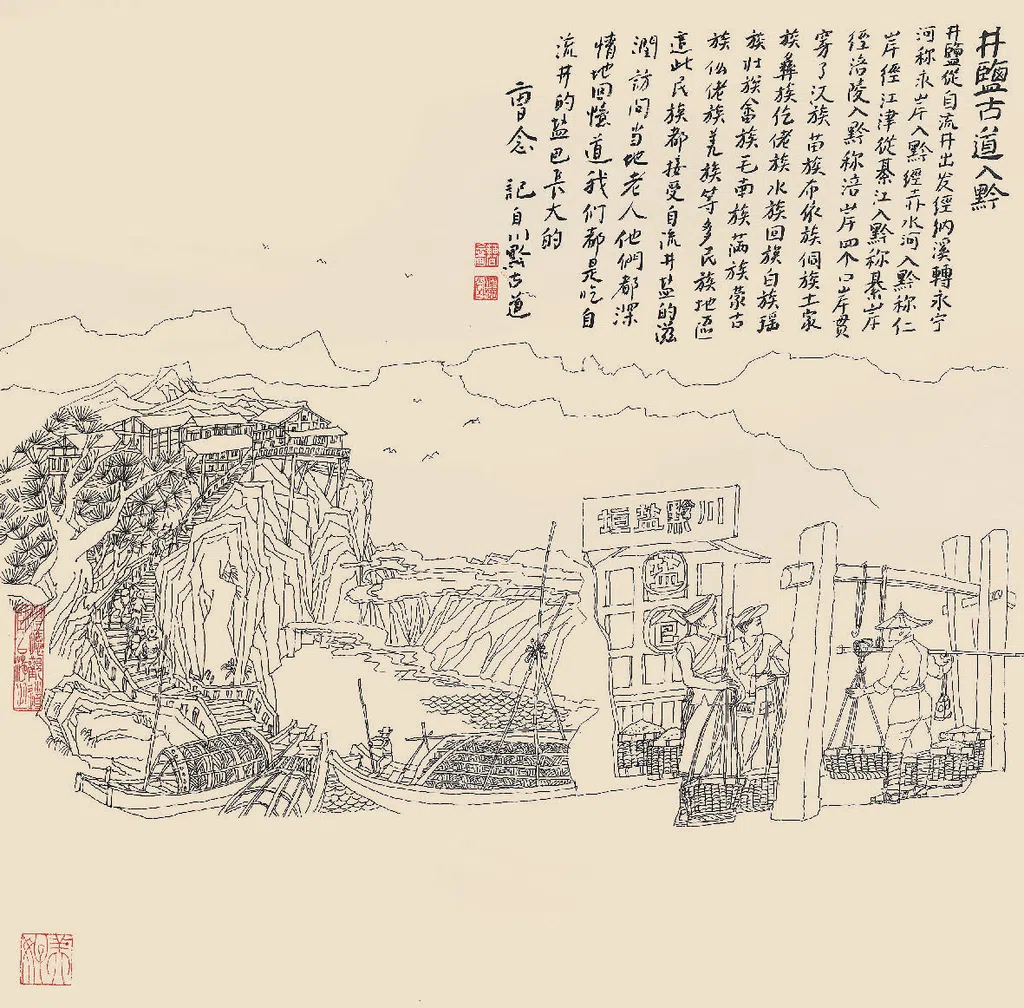 井鹽古道入黔
井鹽從自流井出发經納溪轉永宁
河称永岸入黔經赤水河入黔称仁
岸經江津從綦江入黔称綦岸
經涪陵入黔称涪岸四个口岸貫
穿了汉族苗族布依族侗族土家
族彝族仡佬族水族回族白族瑶
族壮族畲族毛南族滿族蒙古
族仫佬族羌族等多民族地區
這些民族都接受自流井盐的滋
潤訪问当地老人他們都深
情地回憶道我们都是吃自
流井的盐巴長大的
曾念 記自川黔古道
川黔盐埴
盐